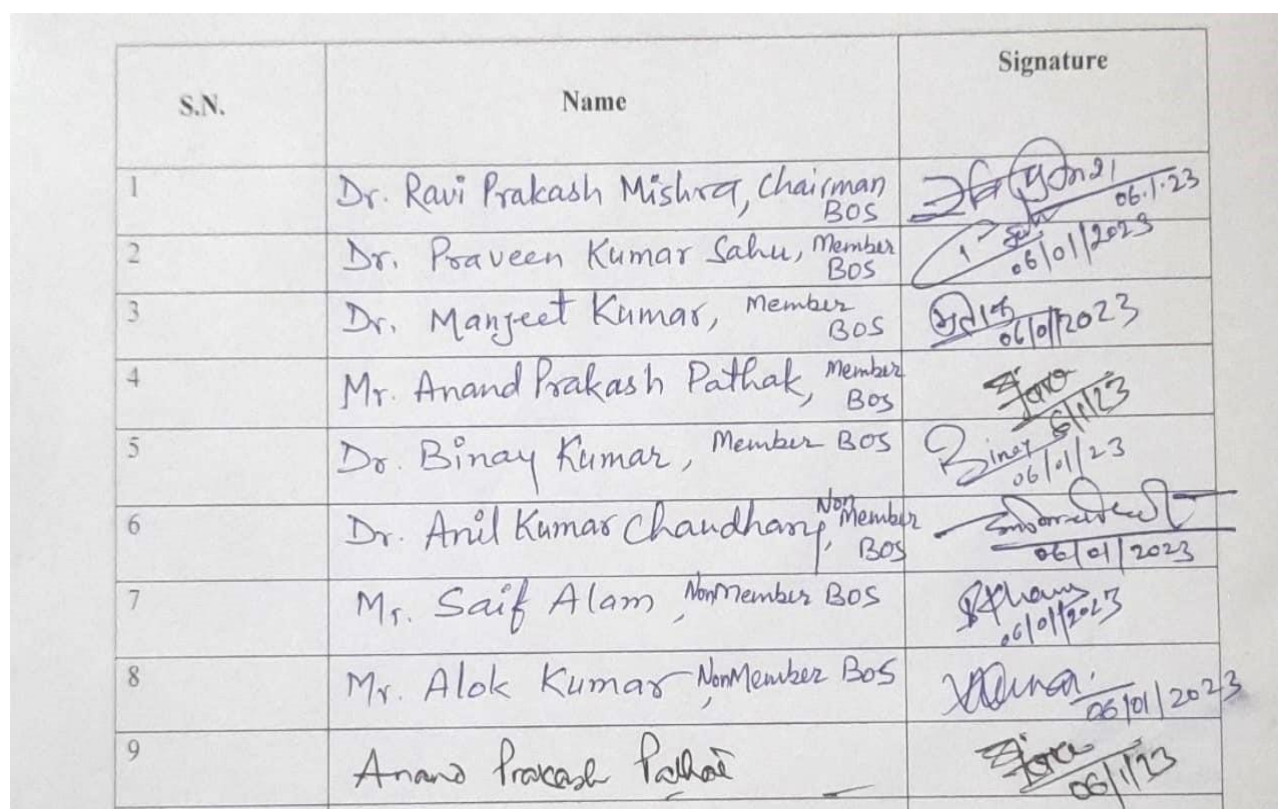 S.N. Name Signature
1 Dr. Ravi Prakash Mishra, Chairman
BOS 06.1.23
2 Dr. Praveen Kumar Sahu, Member
BOS 06/01/2023
3 Dr. Manjeet Kumar, Member
BOS 06/01/2023
4 Mr. Anand Prakash Pathak, Member
BOS 6/1/23
5 Dr. Binay Kumar, Member BOS Binay
06/01/23
6 Dr. Anil Kumar Chaudhary, Non Member
BOS 06/01/2023
7 Mr. Saif Alam, Non Member BOS
06/01/2023
8 Mr. Alok Kumar, Non Member BOS
06/01/2023
9 Anand Prakash Pathak
06/1/23